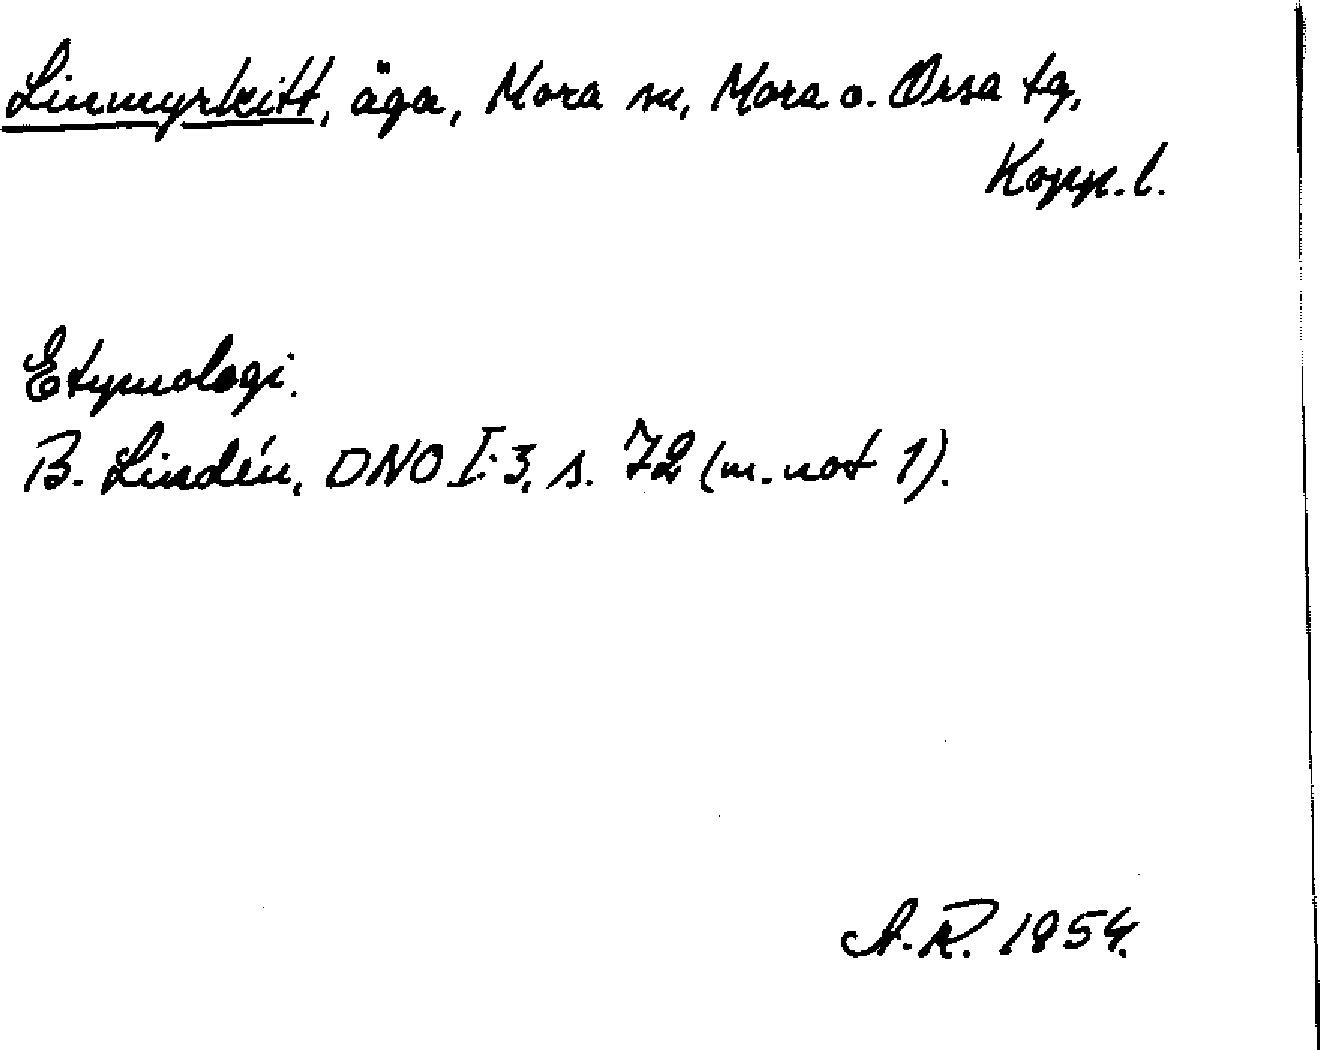 Linmyrkitt, äga, Mora sn, Mora o. Orsa tg,
Kopp. l.
Etymologi.
B. Lindén, DNO I:3, s. 72 (m. not 1).
A. R. 1954.